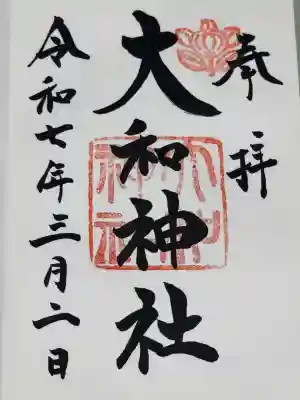 奉拝
大和神社
令和七年三月二日